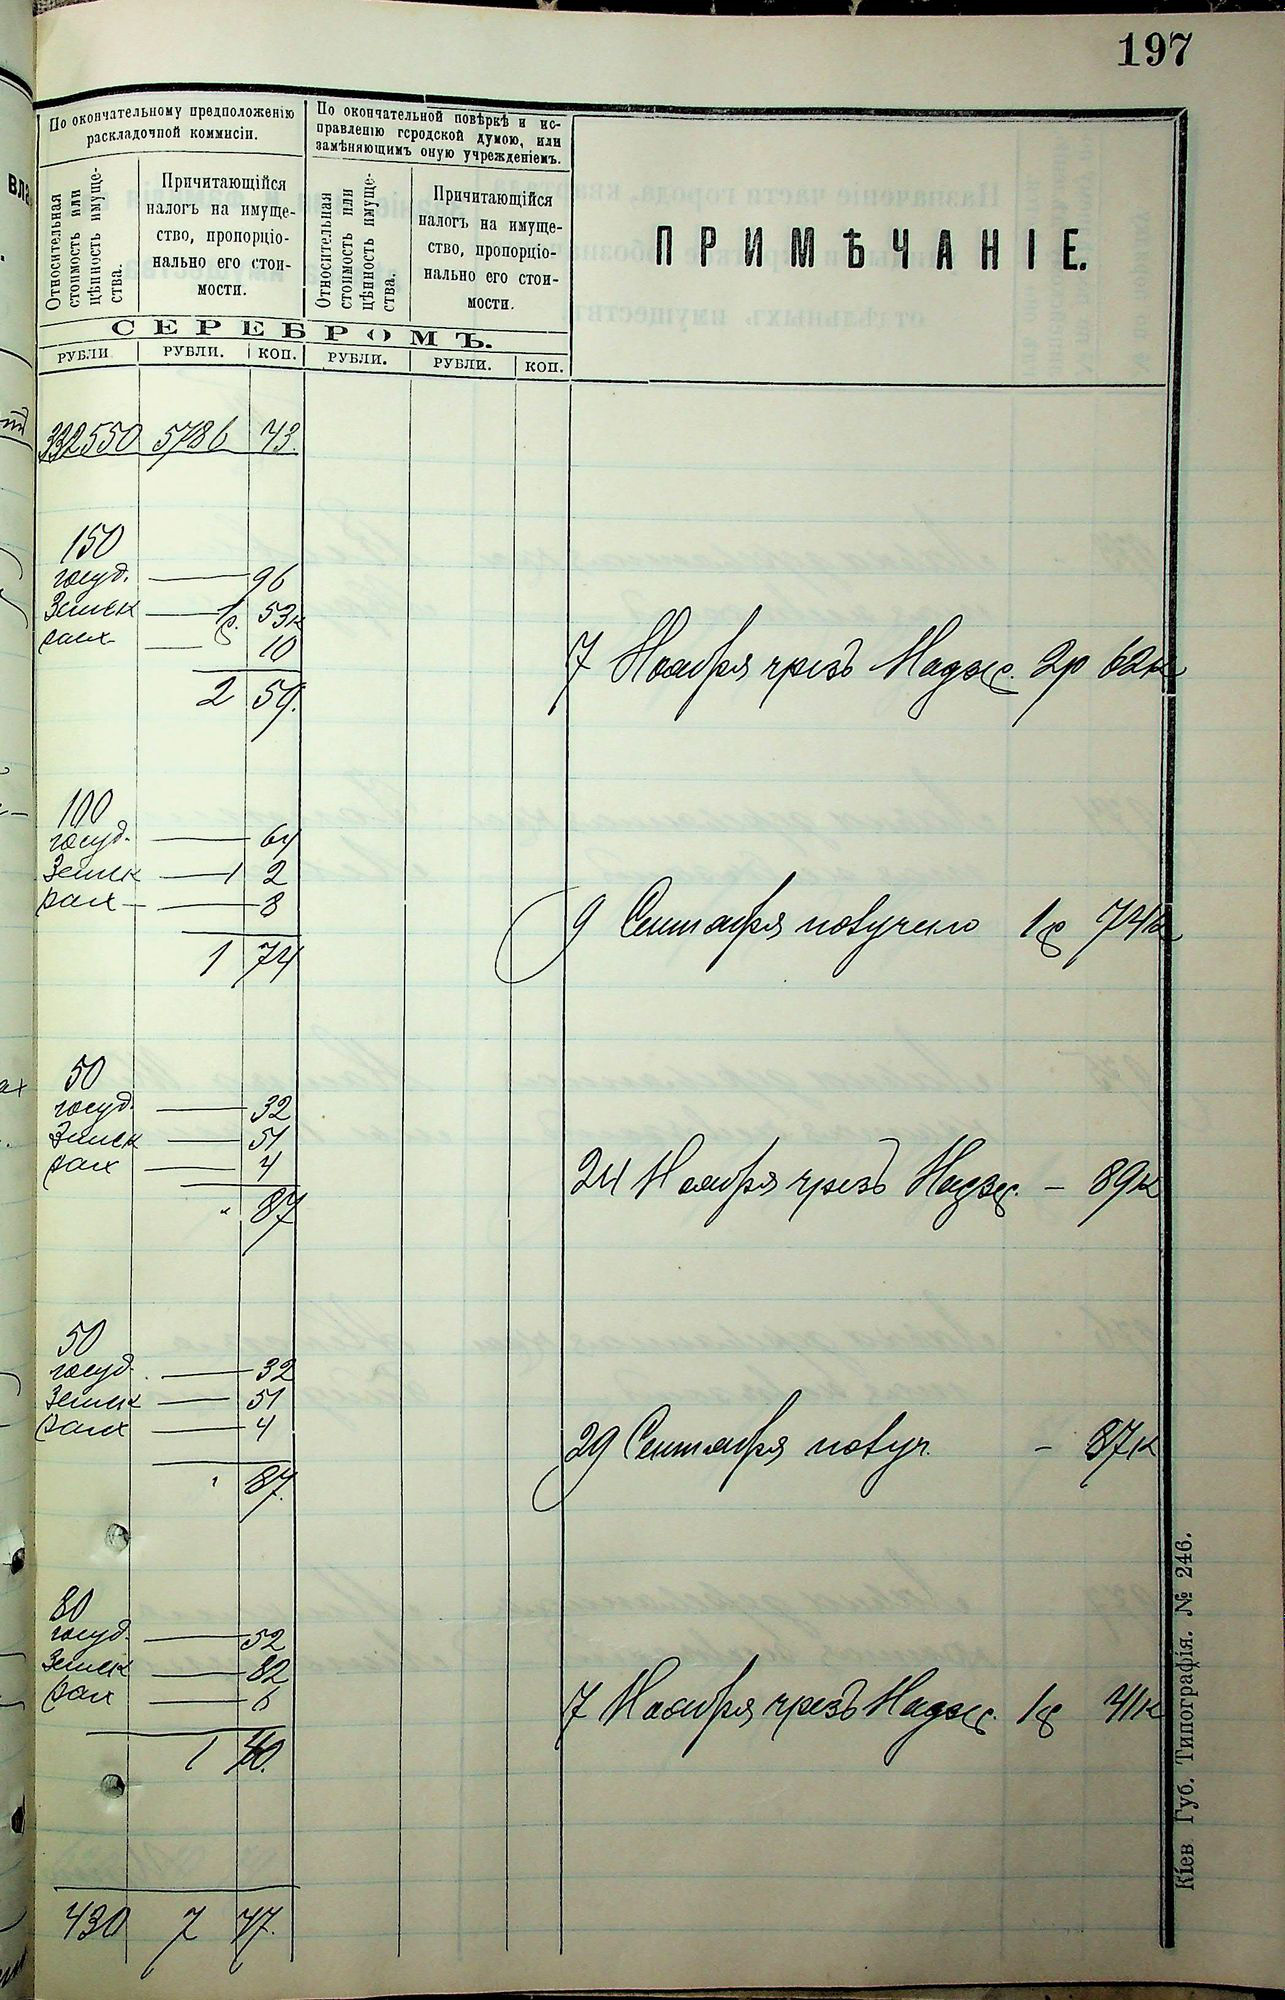 197
По окончательному предположенію
раскладочной коммисіи.
По окончательной повѣркѣ и ис-
правленію городской думою, или
замѣняющимъ оную учрежденіемъ.
Относительная
стоимость или
цѣнность имуще-
ства.
Причитающійся
налогъ на имуще-
ство, пропорціо-
нально его стои-
мости.
Относительная
стоимость или
цѣнность имуще-
ства.
Причитающійся
налогъ на имуще-
ство, пропорціо-
нально его стои-
мости.
ПРИМѢЧАНІЕ.
СЕРЕБРОМЪ.
РУБЛИ РУБЛИ. КОП. РУБЛИ. РУБЛИ. КОП.
332550 5786 43.
150
госуд. — 96
Земск — 1р. 53к
расх — 10
7 Ноября чрезъ Надзс. 2р 62к
2 59.
100
госуд. — 64
Земск — 1 2
расх — 8
9 Сентября получено 1р 74к
1 74
50
госуд. — 32
Земск — 51
расх — 4
24 Ноября чрезъ Надзс. — 89к
" 87
50
госуд. — 32
Земск — 51
расх — 4
29 Сентября получ. — 87к
" 87.
80
госуд. — 52
Земск — 82
расх — 6
7 Ноября чрезъ Надзс. 1р 41к
1 40.
430 7 47.
Кіев Губ. Типографія. № 246.